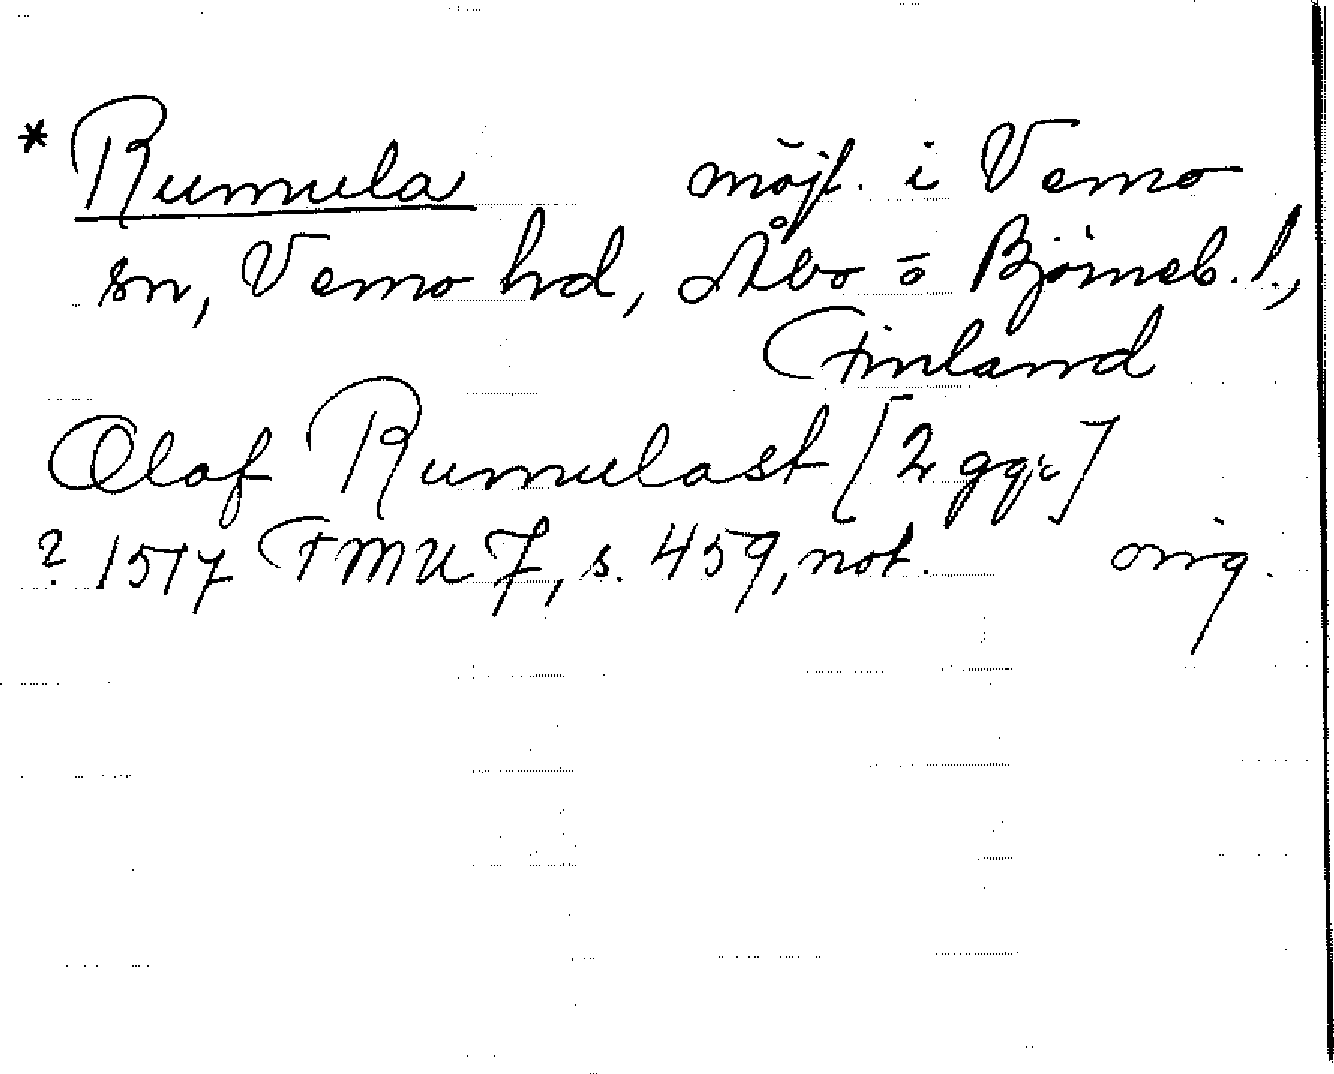 * Rumula möjl. i Vemo
sn, Vemo hd, Åbo o Björneb. l.,
Finland
Olaf Rumulast [2 ggr]
? 1517 FMU 7, s. 459, not. orig.